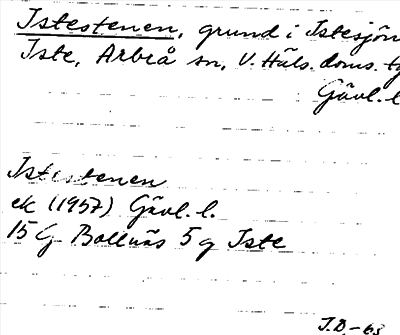 Istestenen, grund i Istesjön
Iste, Arbrå sn, V. Häls. doms. tg
Gävl. l
Istestenen
ek (1957) Gävl. l.
15 G Bollnäs 5 g Iste
J.D. -63